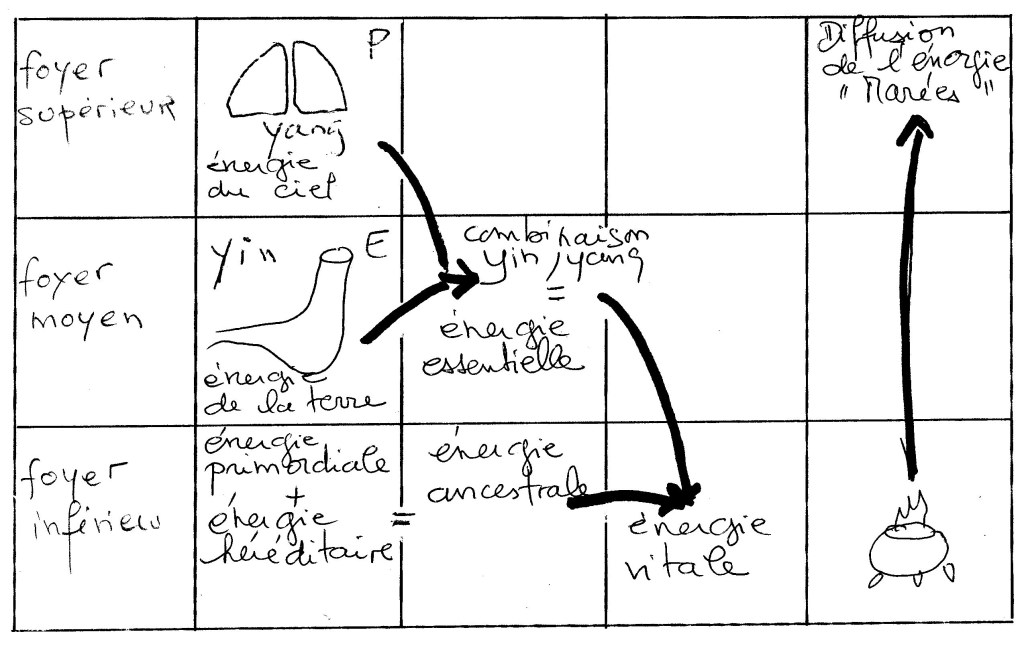 foyer
supérieur
P
yang
énergie
du ciel
Diffusion
de l'énergie
"Marées"
foyer
moyen
yin
E
énergie
de la terre
combinaison
yin, yang
=
énergie
essentielle
foyer
inférieu
énergie
primordiale
+
énergie
héréditaire
=
énergie
ancestrale
énergie
vitale